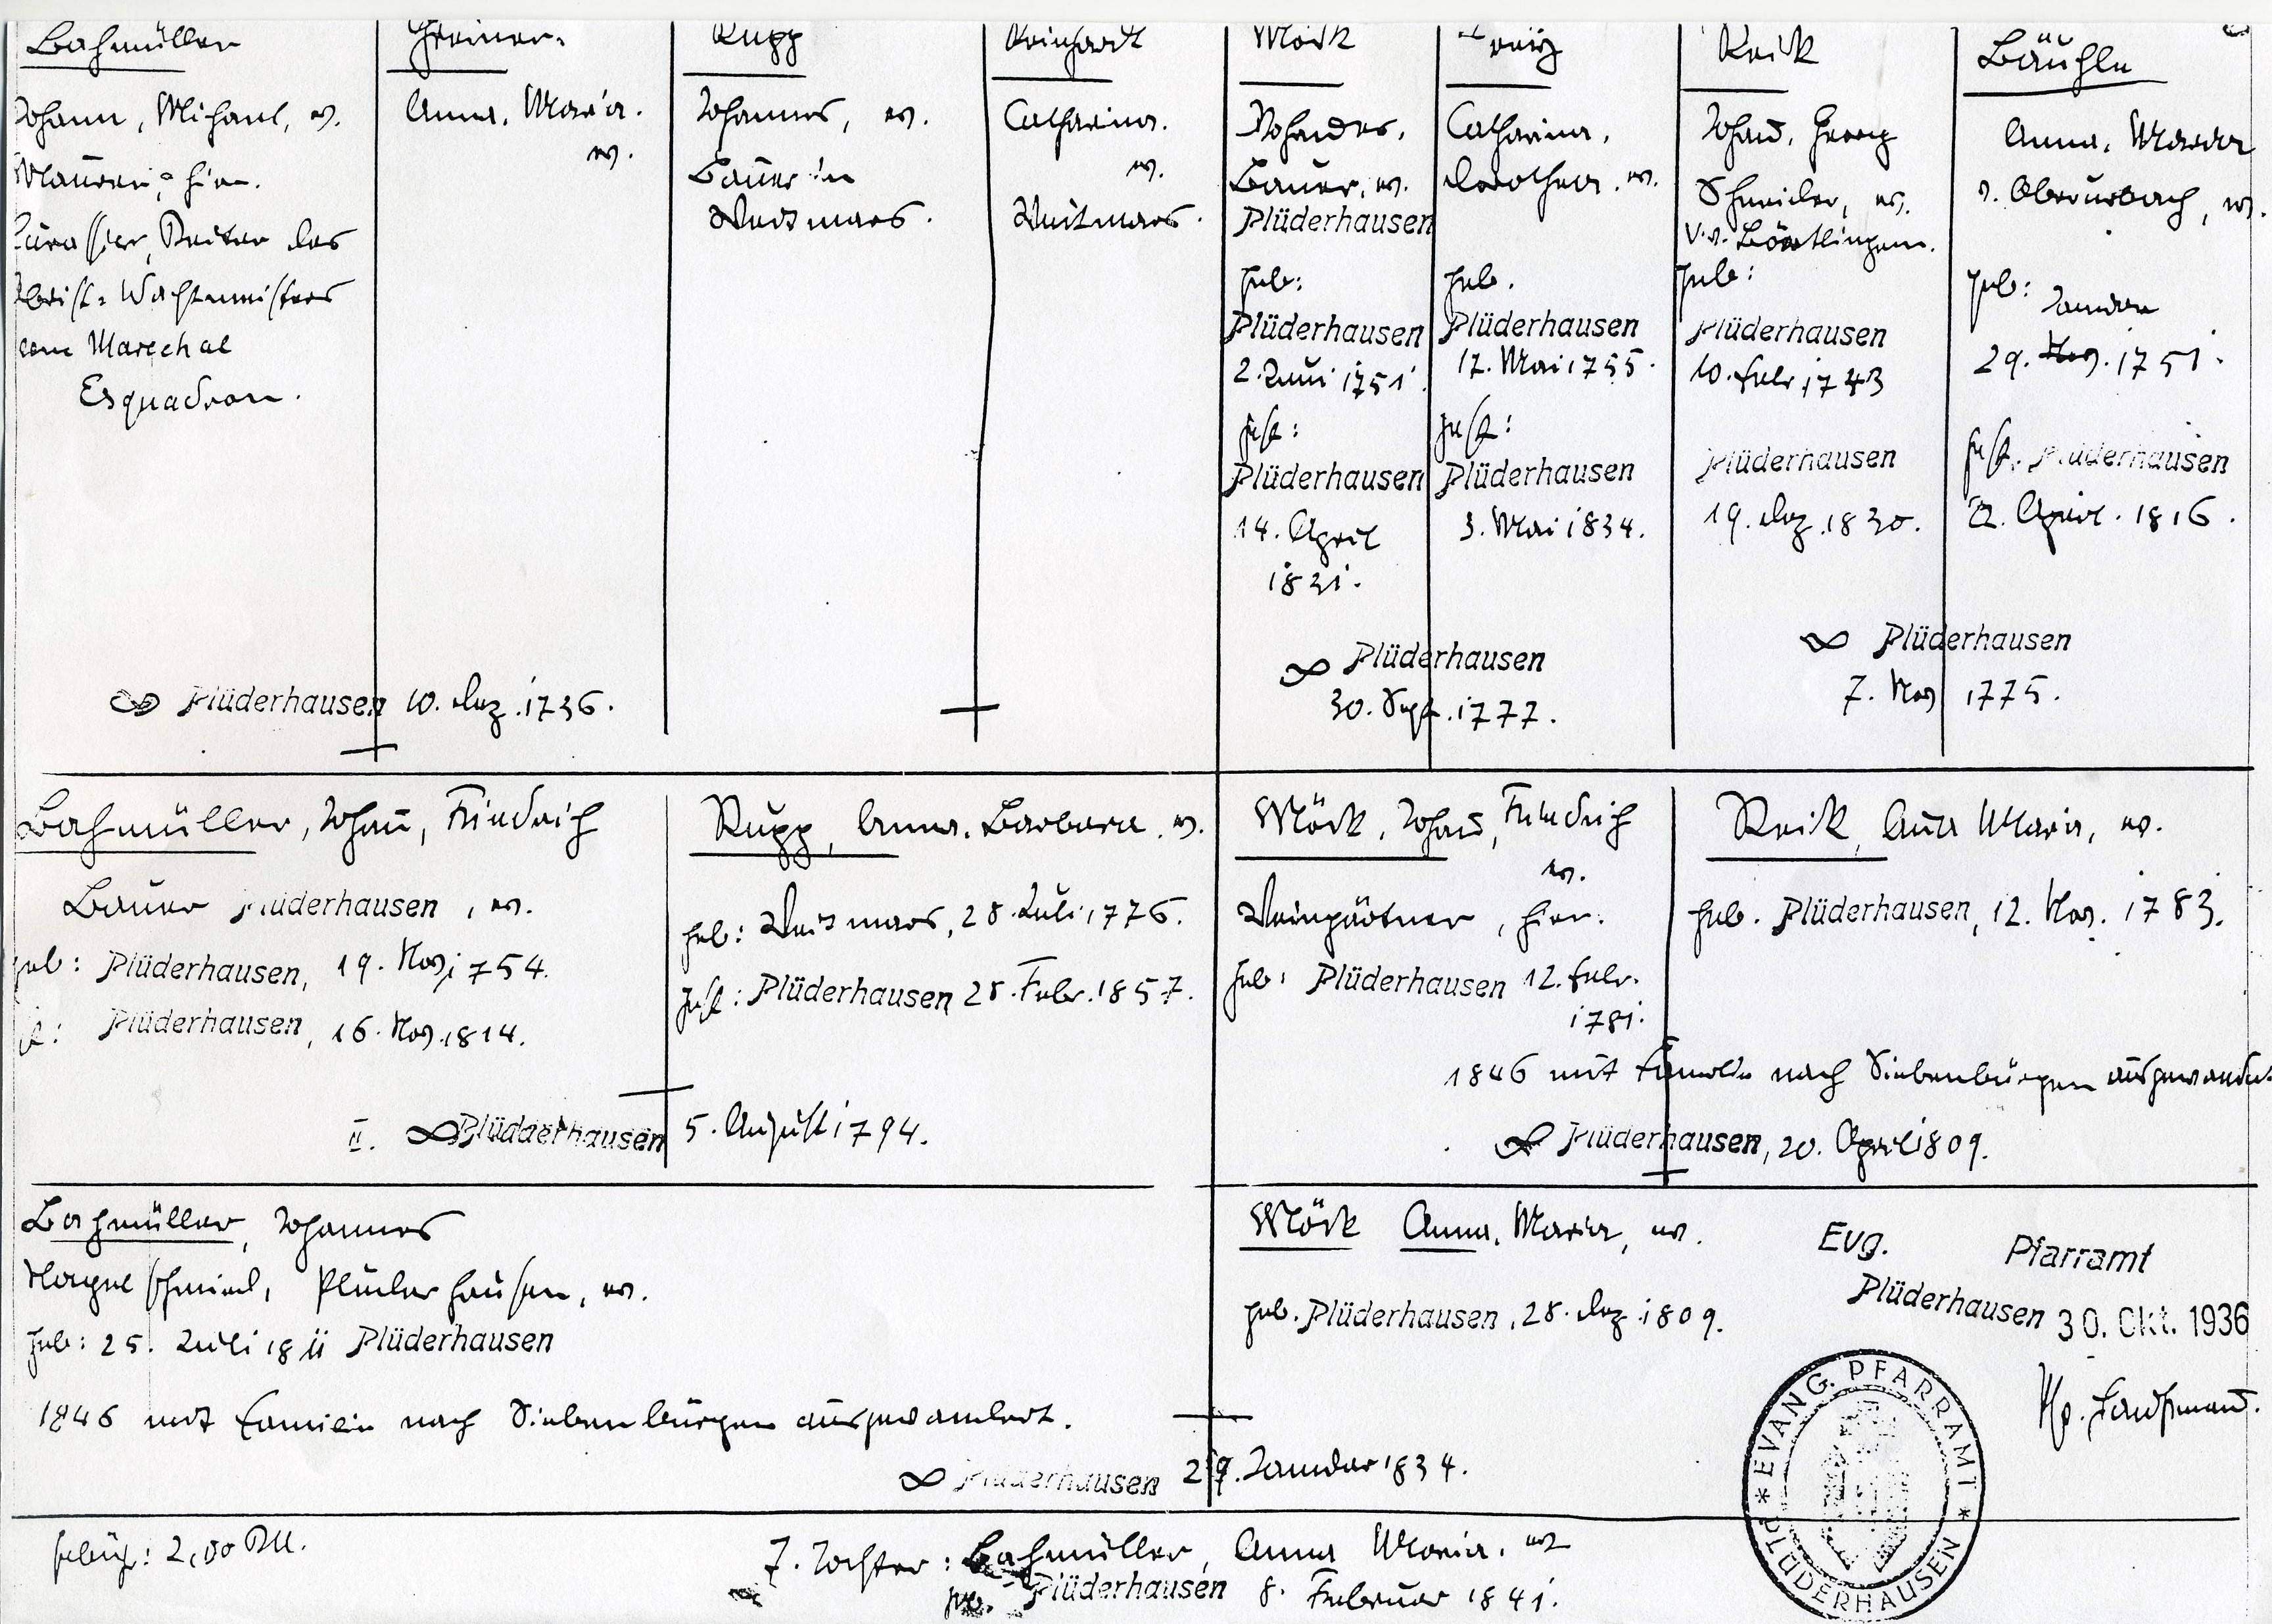 Bahmüller
Johann, Michael, ev.
Maurer, hier.
Reiter des
Obrist-Wachtmeisters
Marechal
Esquadron.
Greiner.
Anna, Maria.
ev.
∞ Plüderhausen 10. Dez. 1736.
Rupp
Johannes, ev.
Bauer in
Weitmars.
Reinhardt
Catharina.
ev.
Weitmars.
Möck
Johannes,
Bauer, ev.
Plüderhausen
geb:
Plüderhausen
2. Juni 1751.
gest:
Plüderhausen
14. April
1821.
Catharina,
Dorothea, ev.
geb.
Plüderhausen
17. Mai 1755.
gest:
Plüderhausen
3. Mai 1834.
∞ Plüderhausen
30. Sept. 1777.
Reik
Johann, Georg
Schneider, ev.
v. Börtlingen.
geb:
Plüderhausen
10. Febr. 1743
Plüderhausen
19. Dez. 1830.
Bäuhle
Anna, Maria
v. Oberurbach, ev.
geb: Januar
29. Nov. 1751.
gest. Plüderhausen
22. April. 1816.
∞ Plüderhausen
7. Nov 1775.
Bahmüller, Johann, Friedrich
Bauer Plüderhausen, ev.
geb: Plüderhausen, 19. Nov. 1754.
Plüderhausen, 16. Nov. 1814.
Rupp, Anna, Barbara, ev.
geb: Weitmars, 28. Juli 1776.
gest: Plüderhausen 28. Febr. 1857.
II. ∞ Plüderhausen 5. August 1794.
Möck, Johann, Friedrich
ev.
Weingärtner, hier.
geb: Plüderhausen 12. Febr.
1781.
Reik, Anna Maria, ev.
geb. Plüderhausen, 12. Nov. 1783.
1846 mit Familie nach Siebenbürgen ausgewandert.
∞ Plüderhausen, 20. April 1809.
Bahmüller, Johannes
Nagelschmied, Plüderhausen, ev.
geb: 25. Juli 1811 Plüderhausen
1846 mit Familie nach Siebenbürgen ausgewandert.
Möck Anna, Maria, ev.
geb. Plüderhausen, 28. Dez. 1809.
∞ Plüderhausen 29. Januar 1834.
Evg. Pfarramt
Plüderhausen 30. Okt. 1936
* EVANG. PFARRAMT * PLÜDERHAUSEN
Gebühr: 2,00 RM.
7. Tochter: Bahmüller, Anna Maria, ev
geb. Plüderhausen 8. Februar 1841.